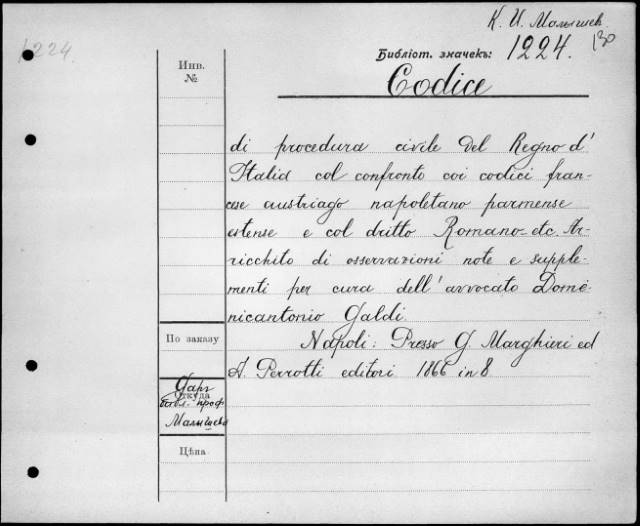 К. И. Малышев
1224
Библіот. значекъ: 1224. 130
Инв.
№
Codice
di procedura civile del Regno d'
Italia col confronto coi codici fran-
cese austriago napoletano parmense
estense e col dritto Romano etc. Ar-
ricchito di osservazioni note e supple-
menti per cura dell' avvocato Dome-
nicantonio Galdi.
По заказу
Napoli: Presso G. Marghieri ed
A. Perrotti editori 1866 in 8
Даръ
Откуда
библ. проф
Малышева
Цѣна